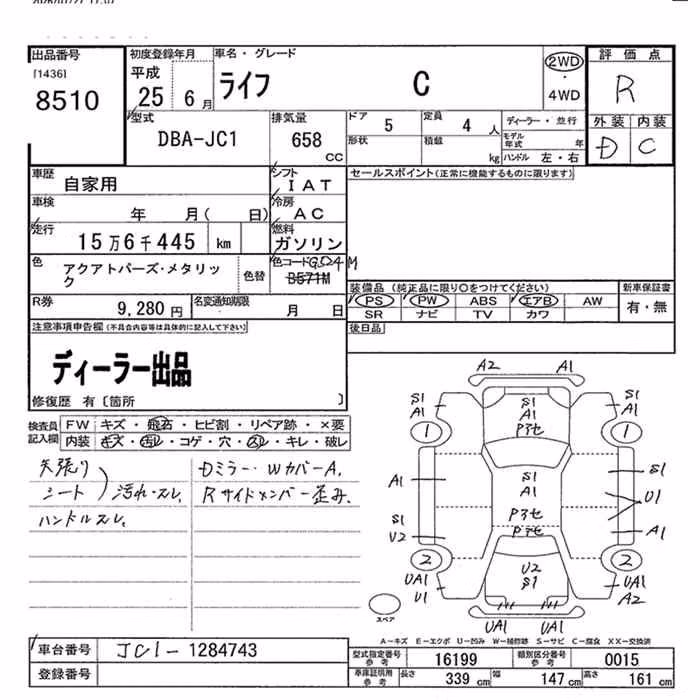 出品番号
[1436]
8510
初度登録年月
平成
25 6月
車名・グレード
ライフ C
2WD
・
4WD
評価点
R
外装 内装
D C
型式
DBA-JC1
排気量
658
cc
ドア 5
定員 4 人
形状
積載 kg
ディーラー・並行
モデル年式 年
ハンドル 左・右
車歴
自家用
シフト
IAT
セールスポイント(正常に機能するものに限ります)
車検
年 月( 日)
冷房
AC
走行
15万6千445 km
燃料
ガソリン
色
アクアトパーズ・メタリック
色替
色コード G524M
B571M
装備品(純正品に限り○をつけてください)
新車保証書
PS PW ABS エアB AW
有・無
SR ナビ TV カワ
R券
9,280 円
名変通知期限
月 日
後日品
注意事項申告欄(不具合内容等は具体的に記入して下さい)
ディーラー出品
修復歴 有〔箇所 〕
検査員記入欄
FW キズ・飛石・ヒビ割・リペア跡・×要
内装 キズ・汚レ・コゲ・穴・スレ・キレ・破レ
天張り
シート 汚れ・スレ
ハンドルスレ、
Dミラー・WカバーA、
Rサイドメンバー歪み、
A2 A1
S1
A1
S1
A1
S1
A1
Pアセ
1 1
A1
S1
A1
S1
U1
S1
U2
Pアセ
Pアセ
A1
2 2
UA1
U1
U2
S1
UA1
A2
UA1 UA1
スペア
A-キズ E-エクボ U-凹み W-補修跡 S-サビ C-腐食 XX-交換済
車台番号
JC1-1284743
登録番号
型式指定番号
参考
16199
類別区分番号
参考
0015
車庫証明用
参考
長さ 339 cm
幅 147 cm
高さ 161 cm